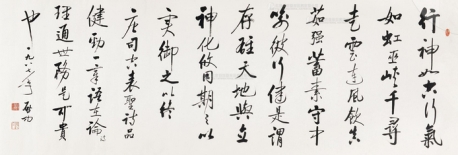 行神如空行氣
如虹巫峽千尋
走雲連風飲真
茹强蓄素守中
喻彼行健是謂
存雄天地與立
神化攸同期之以
實御之以終
唐司空表聖詩品
健勁一章語
理通世務是可貴
也 一九八 年 啟功